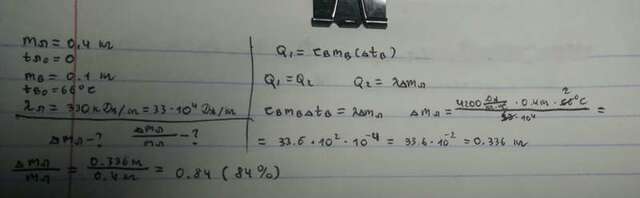 mл = 0,4 кг
tл₀ = 0
mв = 0,1 кг
tв₀ = 66°C
λл = 330 кДж/кг = 33·10⁴ Дж/кг
Δmл - ? Δmл/mл - ?
Q₁ = cвmв(Δtв)
Q₁ = Q₂ Q₂ = λΔmл
cвmвΔtв = λΔmл Δmл = 4200 Дж/кг·°C · 0.4кг · 66°C / 33·10⁴ =
= 33.6 · 10² · 10⁻⁴ = 33.6 · 10⁻² = 0.336 кг
Δmл/mл = 0.336кг/0.4кг = 0.84 (84%)